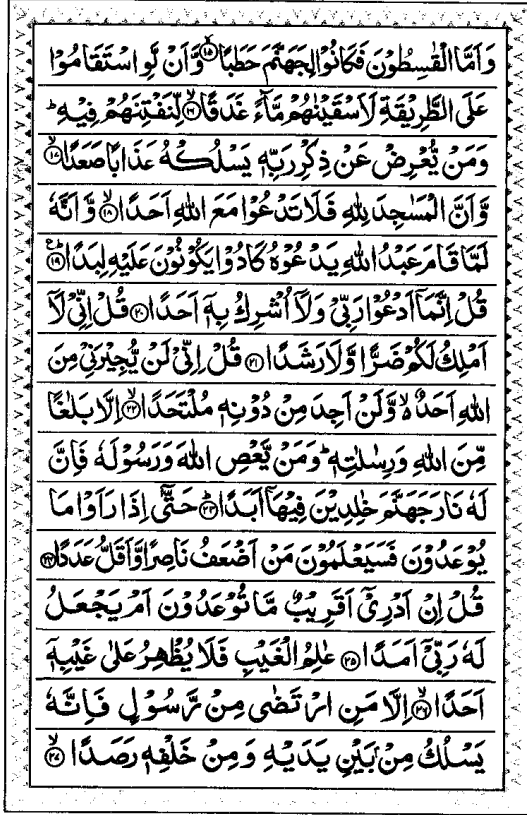 وَاَمَّا الْقٰسِطُوْنَ فَكَانُوْا لِجَهَنَّمَ حَطَبًا ۙ﴿۱۵﴾ وَّاَنْ لَّوِ اسْتَقَامُوْا
عَلَى الطَّرِيْقَةِ لَاَسْقَيْنٰهُمْ مَّآءً غَدَقًا ۙ﴿۱۶﴾ لِّنَفْتِنَهُمْ فِيْهِ ؕ
وَمَنْ يُّعْرِضْ عَنْ ذِكْرِ رَبِّهٖ يَسْلُكْهُ عَذَابًا صَعَدًا ۙ﴿۱۷﴾
وَّاَنَّ الْمَسٰجِدَ لِلّٰهِ فَلَا تَدْعُوْا مَعَ اللّٰهِ اَحَدًا ۙ﴿۱۸﴾ وَّاَنَّهٗ
لَمَّا قَامَ عَبْدُ اللّٰهِ يَدْعُوْهُ كَادُوْا يَكُوْنُوْنَ عَلَيْهِ لِبَدًا ؕ﴿۱۹﴾
قُلْ اِنَّمَآ اَدْعُوْا رَبِّيْ وَلَآ اُشْرِكُ بِهٖٓ اَحَدًا ﴿۲۰﴾ قُلْ اِنِّيْ لَآ
اَمْلِكُ لَكُمْ ضَرًّا وَّلَا رَشَدًا ﴿۲۱﴾ قُلْ اِنِّيْ لَنْ يُّجِيْرَنِيْ مِنَ
اللّٰهِ اَحَدٌ ۙ وَّلَنْ اَجِدَ مِنْ دُوْنِهٖ مُلْتَحَدًا ۙ﴿۲۲﴾ اِلَّا بَلٰغًا
مِّنَ اللّٰهِ وَرِسٰلٰتِهٖ ؕ وَمَنْ يَّعْصِ اللّٰهَ وَرَسُوْلَهٗ فَاِنَّ
لَهٗ نَارَ جَهَنَّمَ خٰلِدِيْنَ فِيْهَآ اَبَدًا ؕ﴿۲۳﴾ حَتّٰٓى اِذَا رَاَوْا مَا
يُوْعَدُوْنَ فَسَيَعْلَمُوْنَ مَنْ اَضْعَفُ نَاصِرًا وَّاَقَلُّ عَدَدًا ﴿۲۴﴾
قُلْ اِنْ اَدْرِيْٓ اَقَرِيْبٌ مَّا تُوْعَدُوْنَ اَمْ يَجْعَلُ
لَهٗ رَبِّيْٓ اَمَدًا ﴿۲۵﴾ عٰلِمُ الْغَيْبِ فَلَا يُظْهِرُ عَلٰى غَيْبِهٖٓ
اَحَدًا ۙ﴿۲۶﴾ اِلَّا مَنِ ارْتَضٰى مِنْ رَّسُوْلٍ فَاِنَّهٗ
يَسْلُكُ مِنْۢ بَيْنِ يَدَيْهِ وَمِنْ خَلْفِهٖ رَصَدًا ۙ﴿۲۷﴾